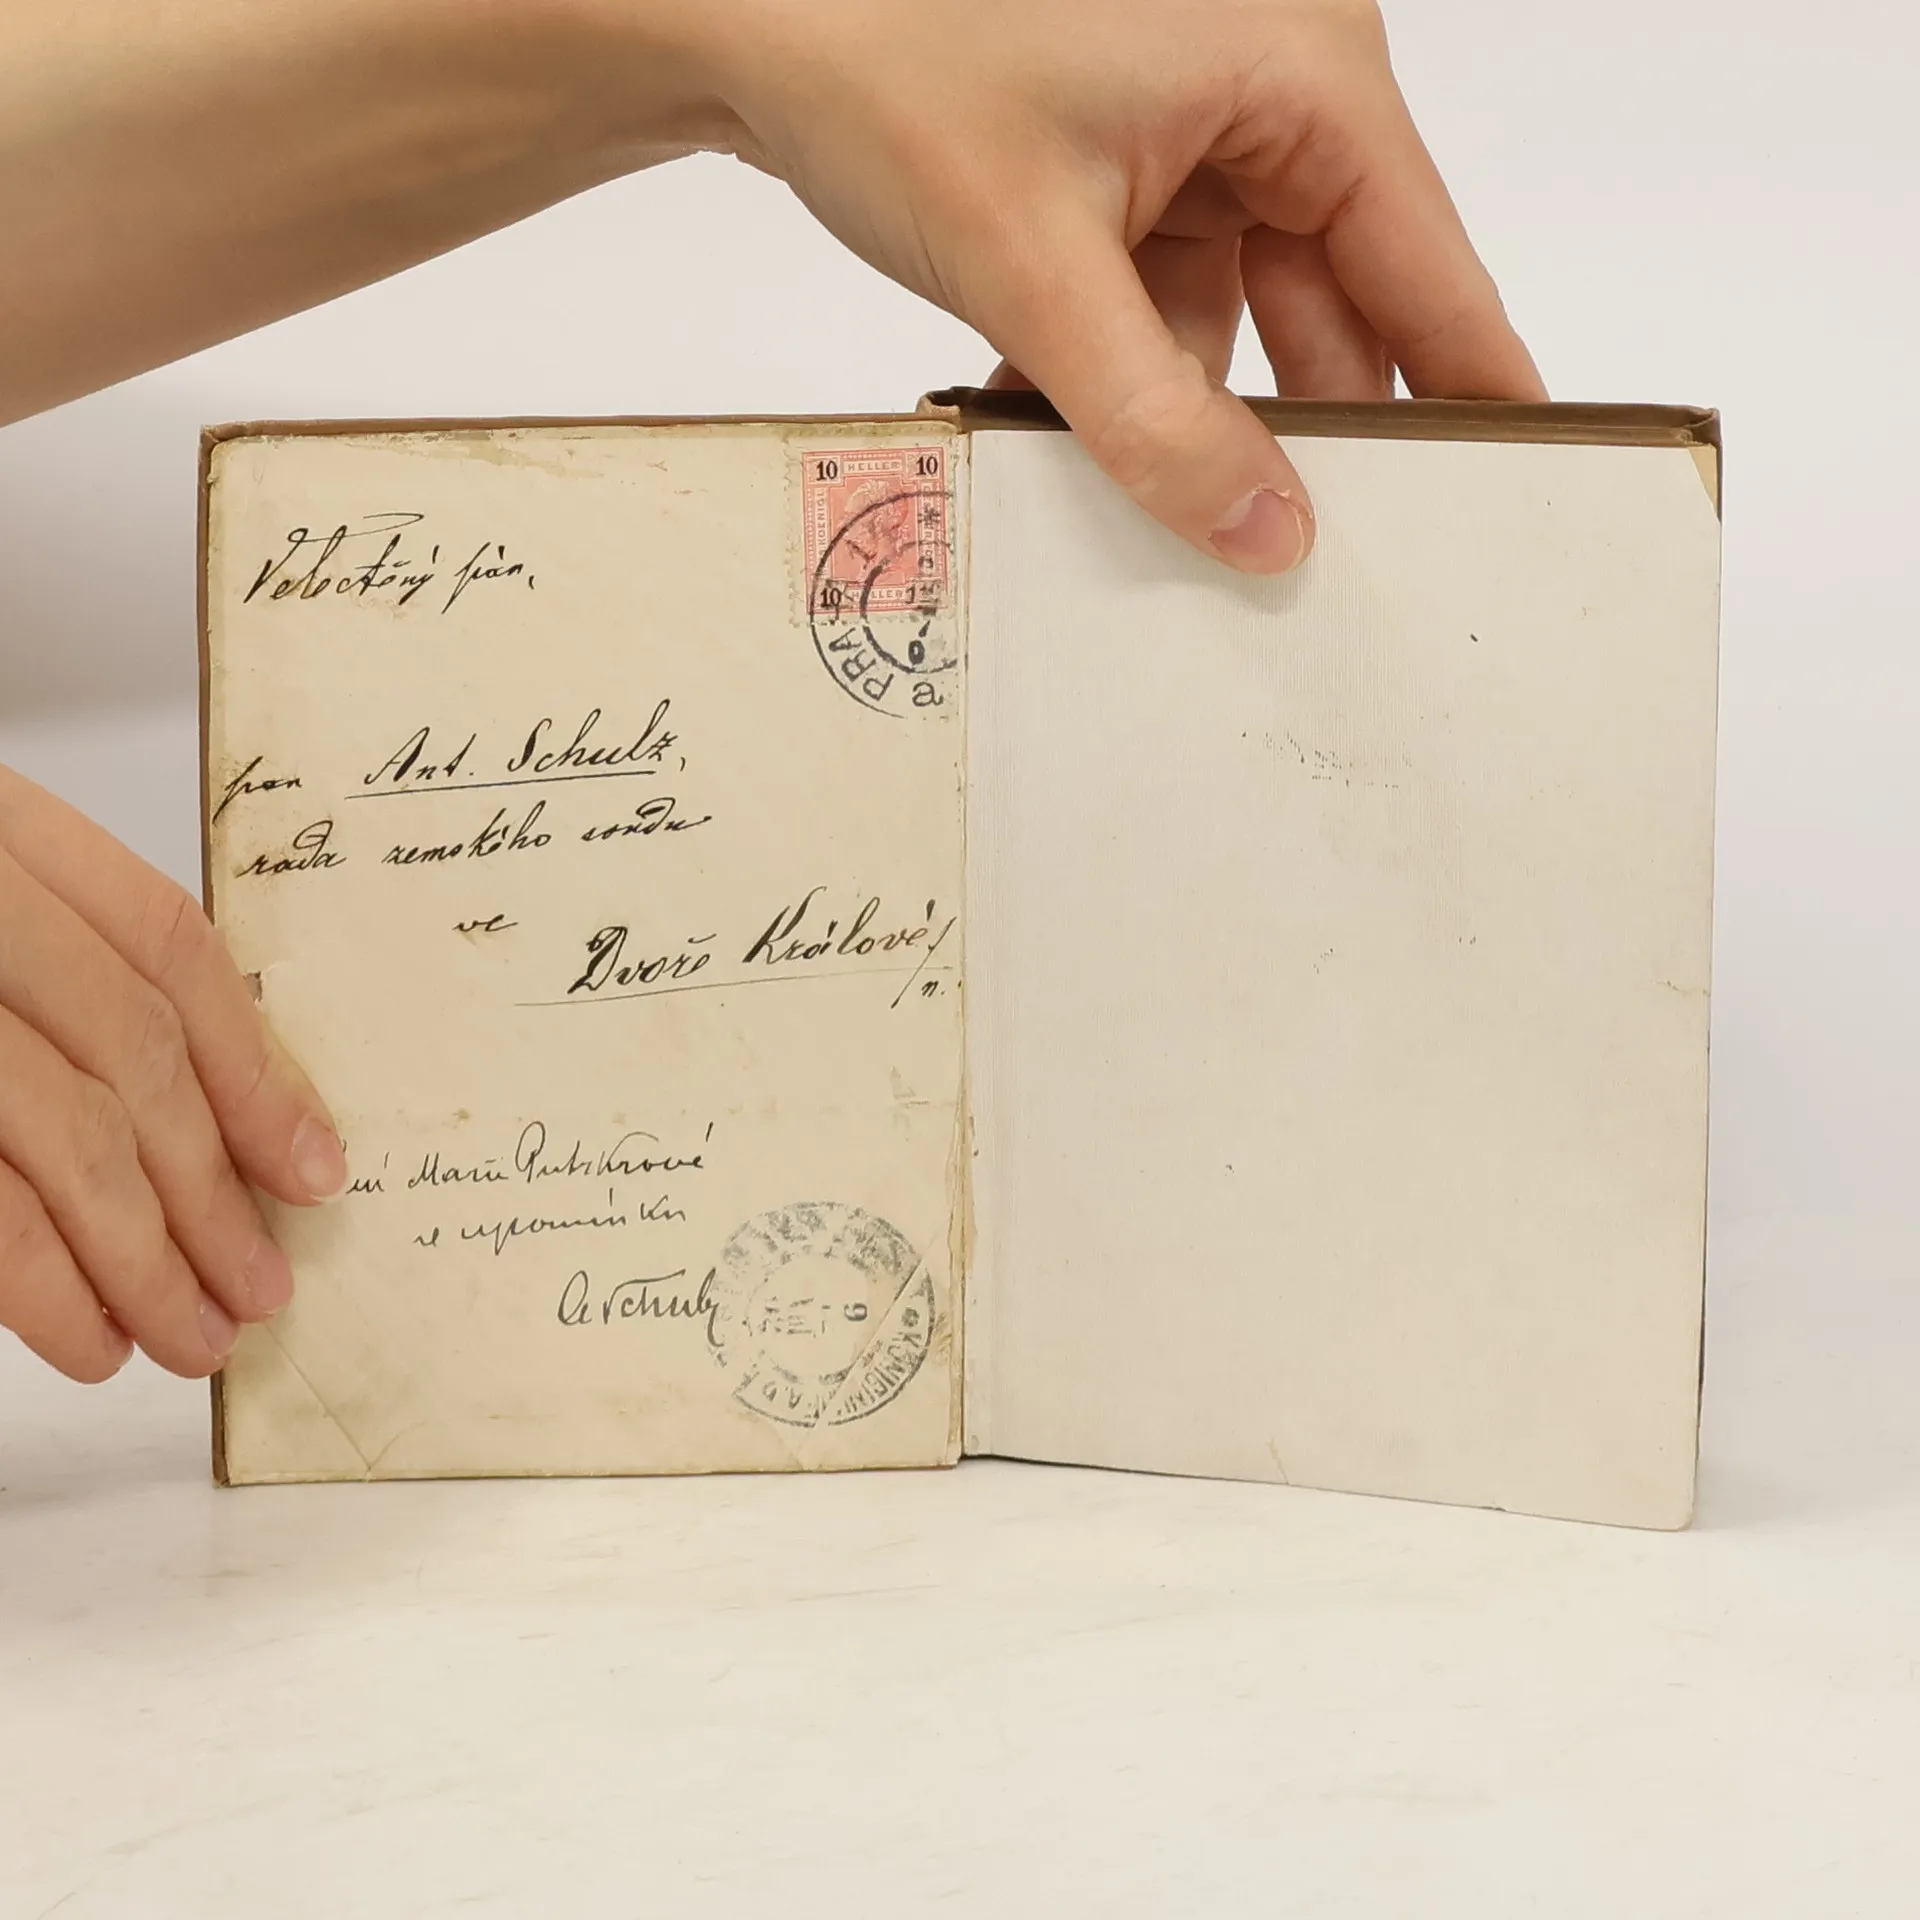 10 HELLER 10
10 HELLER
PRAHA
a
Velectěný pán,
pan Ant. Schulz,
rada zemského soudu
ve
Dvoře Králové/
n.
Marii
ve upomínku
AvSchulz
6
VIII
KÖNIGINHOF A.D.